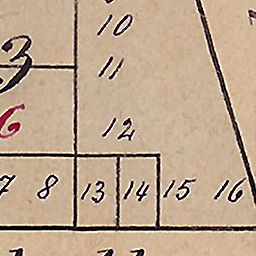 10
3
11
6
12
7 8 13 14 15 16